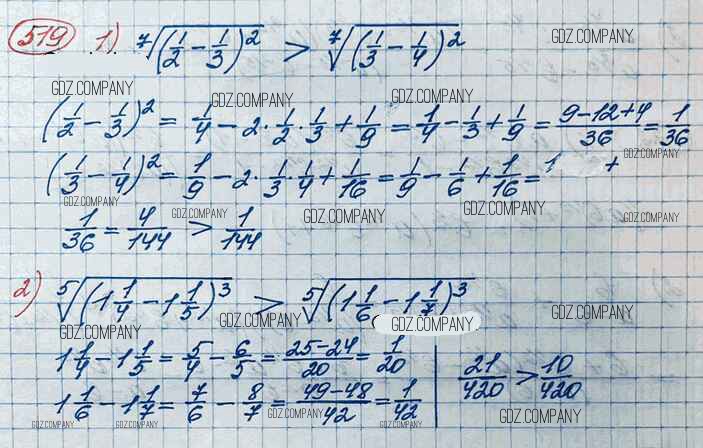 519 1) ⁷√(1/2 − 1/3)² > ⁷√(1/3 − 1/4)²
GDZ.COMPANY
GDZ.COMPANY GDZ.COMPANY GDZ.COMPANY
(1/2 − 1/3)² = 1/4 − 2·1/2·1/3 + 1/9 = 1/4 − 1/3 + 1/9 = (9−12+4)/36 = 1/36
GDZ.COMPANY
(1/3 − 1/4)² = 1/9 − 2·1/3·1/4 + 1/16 = 1/9 − 1/6 + 1/16 = 1 +
GDZ.COMPANY GDZ.COMPANY GDZ.COMPANY GDZ.COMPANY GDZ.COMPANY
1/36 = 4/144 > 1/144
2) ⁵√(1 1/4 − 1 1/5)³ > ⁵√(1 1/6 − 1 1/7)³
GDZ.COMPANY GDZ.COMPANY GDZ.COMPANY GDZ.COMPANY
1 1/4 − 1 1/5 = 5/4 − 6/5 = (25−24)/20 = 1/20
21/420 > 10/420
1 1/6 − 1 1/7 = 7/6 − 8/7 = (49−48)/42 = 1/42
GDZ.COMPANY GDZ.COMPANY GDZ.COMPANY GDZ.COMPANY GDZ.COMPANY